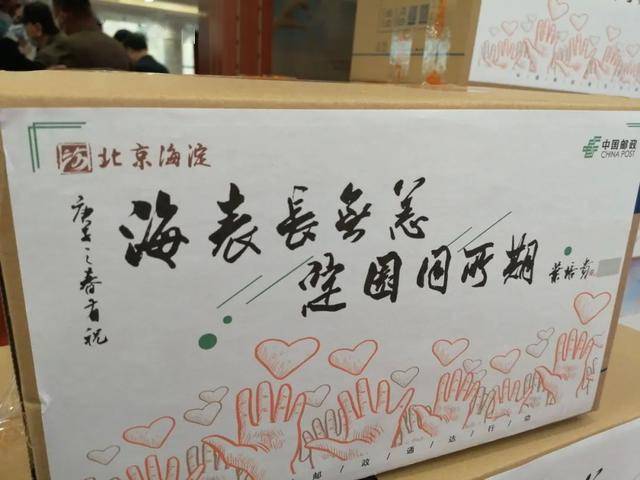 北京海淀
中国邮政
CHINA POST
庚子之春香祝
海表長無恙
楚園同所期
葉培貴
邮/政/通/达/行/动